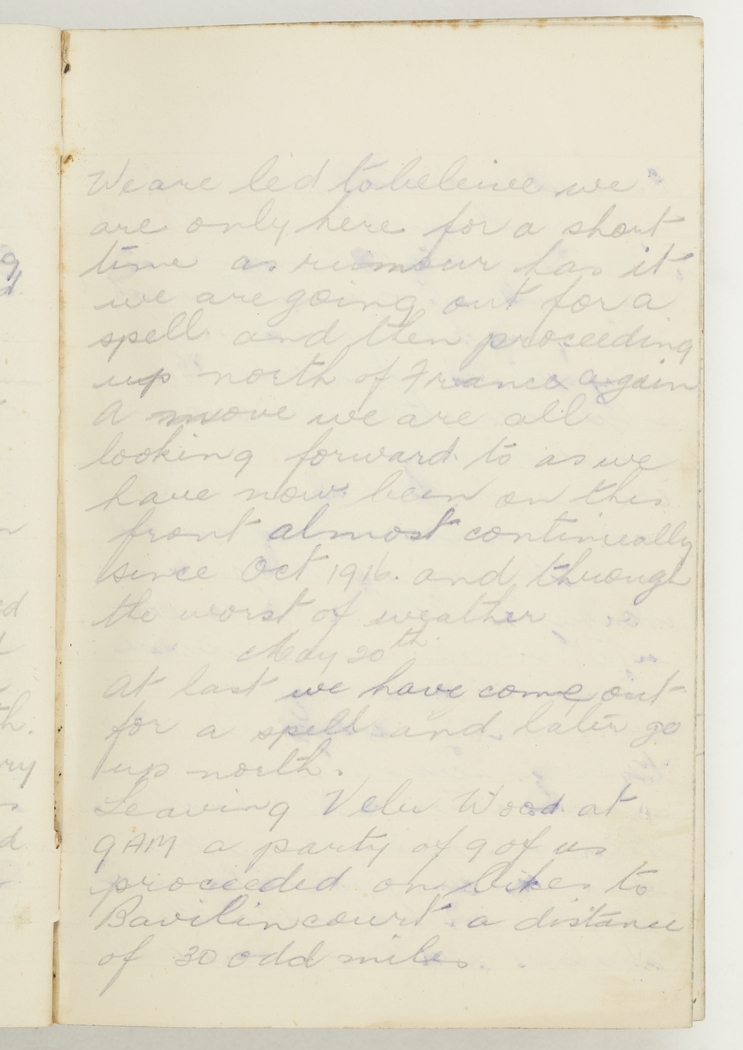 We are led to beleive we
are only here for a short
time as rumour has it
we are going out for a
spell and then proceeding
up north of France again
A move we are all
looking forward to as we
have now been on this
front almost continually
since Oct 1916. and through
the worst of weather
May 20th
At last we have come out
for a spell and later go
up north.
Leaving Velu Wood at
9 AM a party of 9 of us
proceeded on bikes to
Bavilincourt a distance
of 30 odd miles.